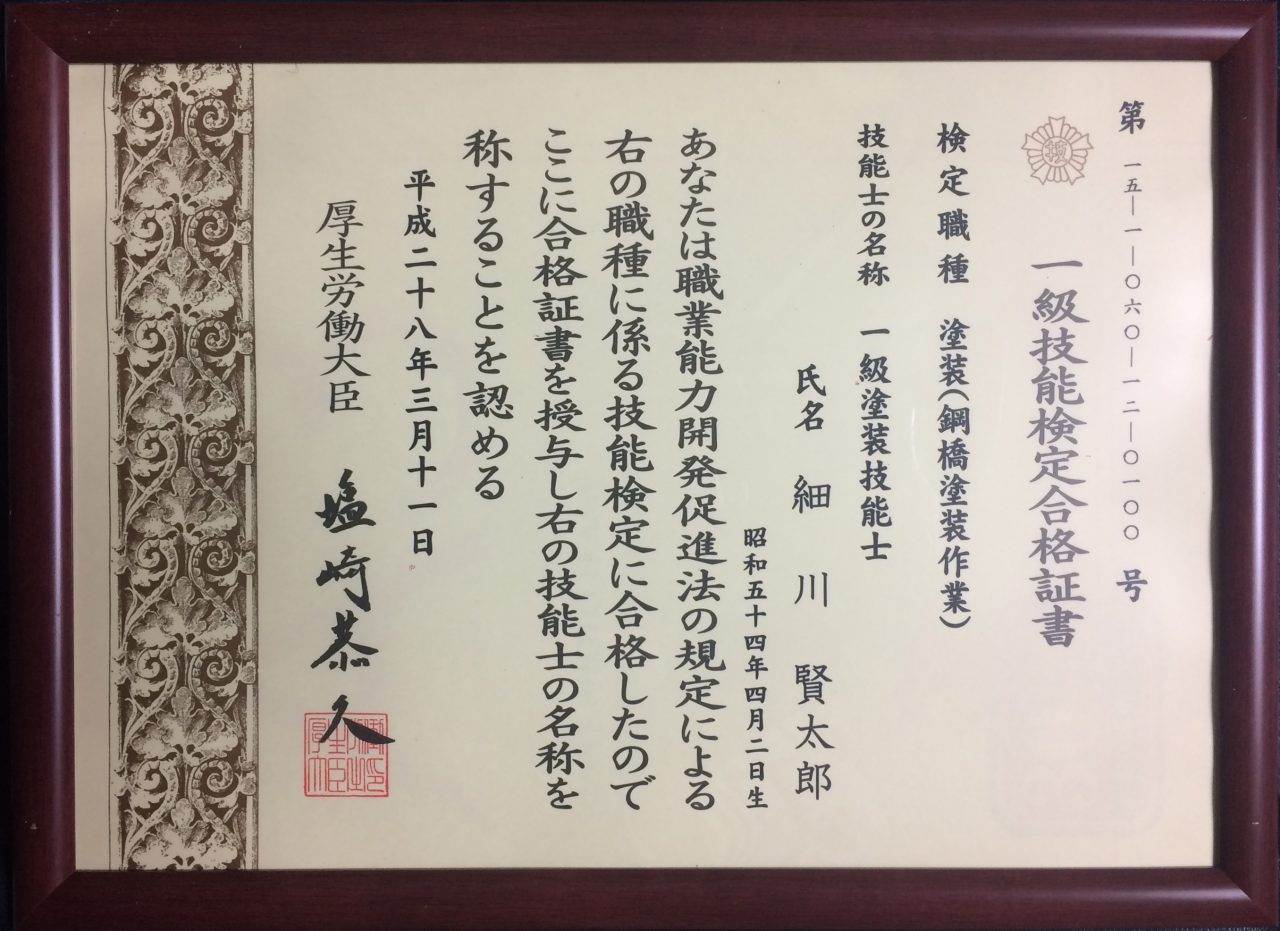 第 一五―一―〇六〇―一二―〇一〇〇 号
一級技能検定合格証書
検定職種 塗装(鋼橋塗装作業)
技能士の名称 一級塗装技能士
氏名 細川 賢太郎
昭和五十四年四月二日生
あなたは職業能力開発促進法の規定による
右の職種に係る技能検定に合格したので
ここに合格証書を授与し右の技能士の名称を
称することを認める
平成二十八年三月十一日
厚生労働大臣 塩崎恭久